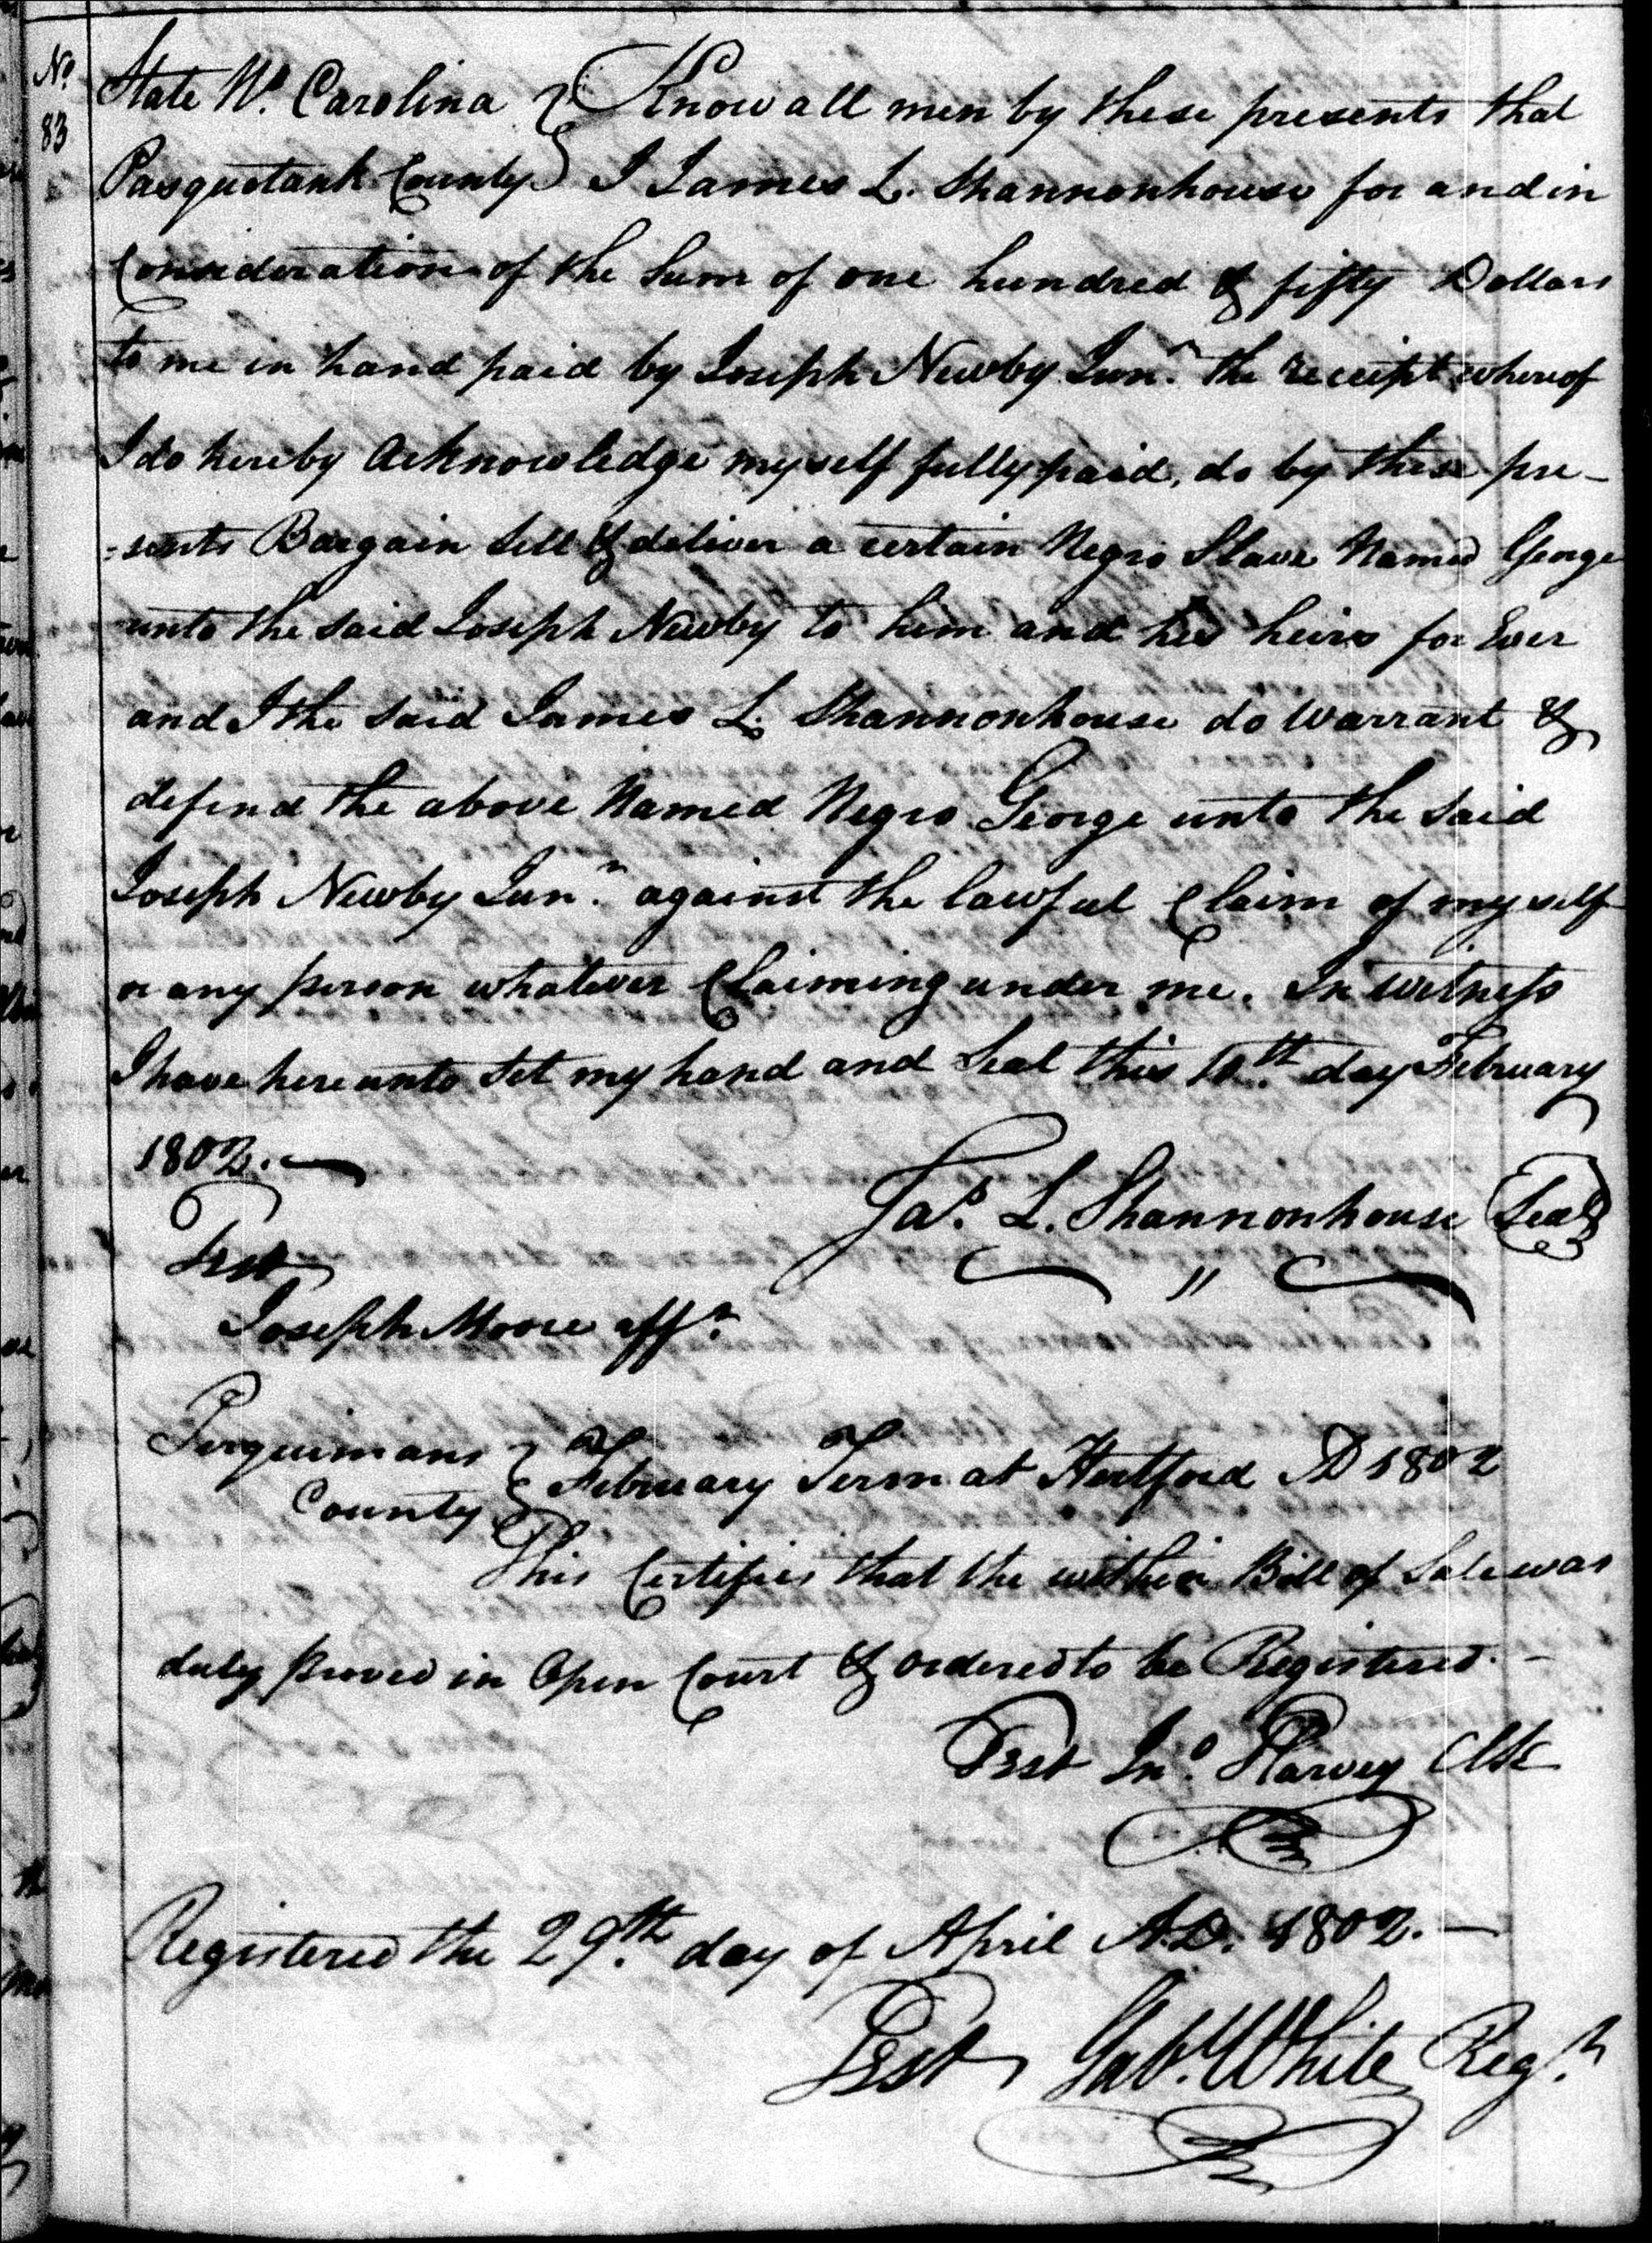 No.
83
State No. Carolina } Know all men by these presents that
Pasquotank County } I James L. Shannonhouse for and in
Consideration of the Sum of one hundred & fifty Dollars
to me in hand paid by Joseph Newby Junr. the receipt whereof
I do hereby acknowledge myself fully paid, do by these pre-
=sents Bargain Sell & deliver a certain Negro Slave Named George
unto the said Joseph Newby to him and his heirs for Ever
and I the said James L. Shannonhouse do warrant &
defend the above Named Negro George unto the said
Joseph Newby Junr. against the lawful Claim of my self
or any person whatever Claiming under me. In witness
I have hereunto Set my hand and Seal this 10th. day February
1802.
Jas. L. Shannonhouse Seal
Test
Joseph Moore affr.
Perquimans } February Term at Hertford AD 1802
County }
This Certifies that the within Bill of Sale was
duly proved in Open Court & ordered to be Registered. -
Test Jno. Harvey Clk
Registered the 29th. day of April A.D. 1802. -
Test Gab. White Regr.